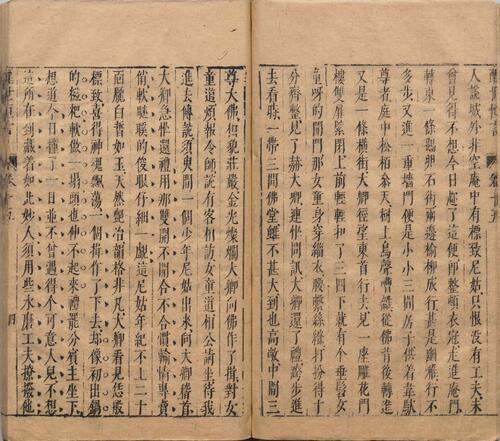 人說城外非空庵中有標致尼姑只恨沒有工夫未
曾見得不想今日趁了這便即整頓衣冠走進庵門
轉東一條鵝卵石街兩邊榆柳成行甚是幽雅行不
多步又進一重墻門便是小小三間房子供着韋馱
尊者庭中松栢參天樹上鳥聲嘈襍從佛背後轉進
又是一條橫街大卿徑望東首行去見一座雕花門
樓雙扉緊閉上前輕輕扣了三四下就有個垂髫女
童呀的開門那女童身穿緇衣腰繫絲絛打扮得十
分齊整見了赫大卿連忙問訊大卿還了禮跨步進
去看時一帶三間佛堂雖不甚大到也高敞中間三
尊大佛相貌莊嚴金光燦爛大卿向佛作了揖對女
童道煩報令師說有客相訪女童道相公請坐待我
進去傳說須臾間一個少年尼姑出來向大卿稽首
大卿急忙還禮用那雙開不開合不合慣輸情專賣
俏軟瞇矁的俊眼仔細一覷這尼姑年紀不上二十
面龐白皙如玉天然艷冶韻格非凡大卿看見恁般
標致喜得神魂飄蕩一個揖作了下去却像初出鍋
的糍粑軟做一塌頭也伸不起來禮罷分賓主坐下
想道今日撞了一日並不曾遇得個可意人兒不想
這所在到藏着如此妙人須用些水磨工夫撩撥他
卷十五
四